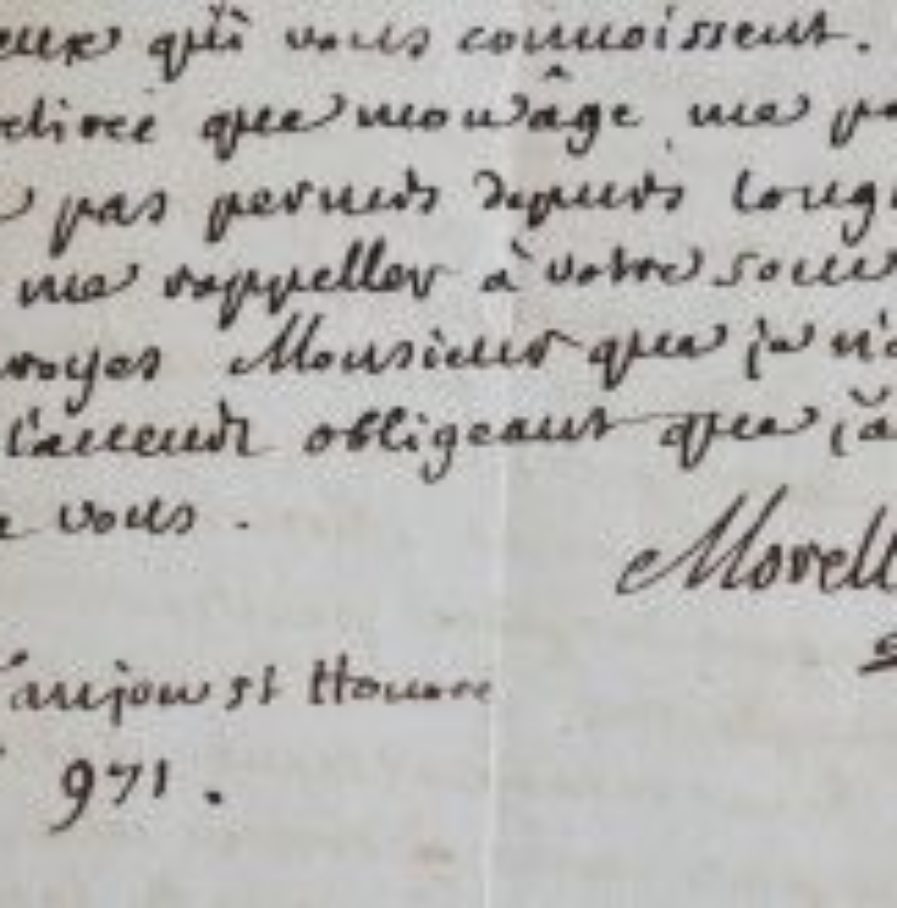 eux qui vous connoissent.
retirée que mon âge me
pas permis depuis long
me rappeller à votre souv
royés Monsieur que je n'
l'accueil obligeant que j'a
vous.
Morell
d'anjou st Honoré
971.